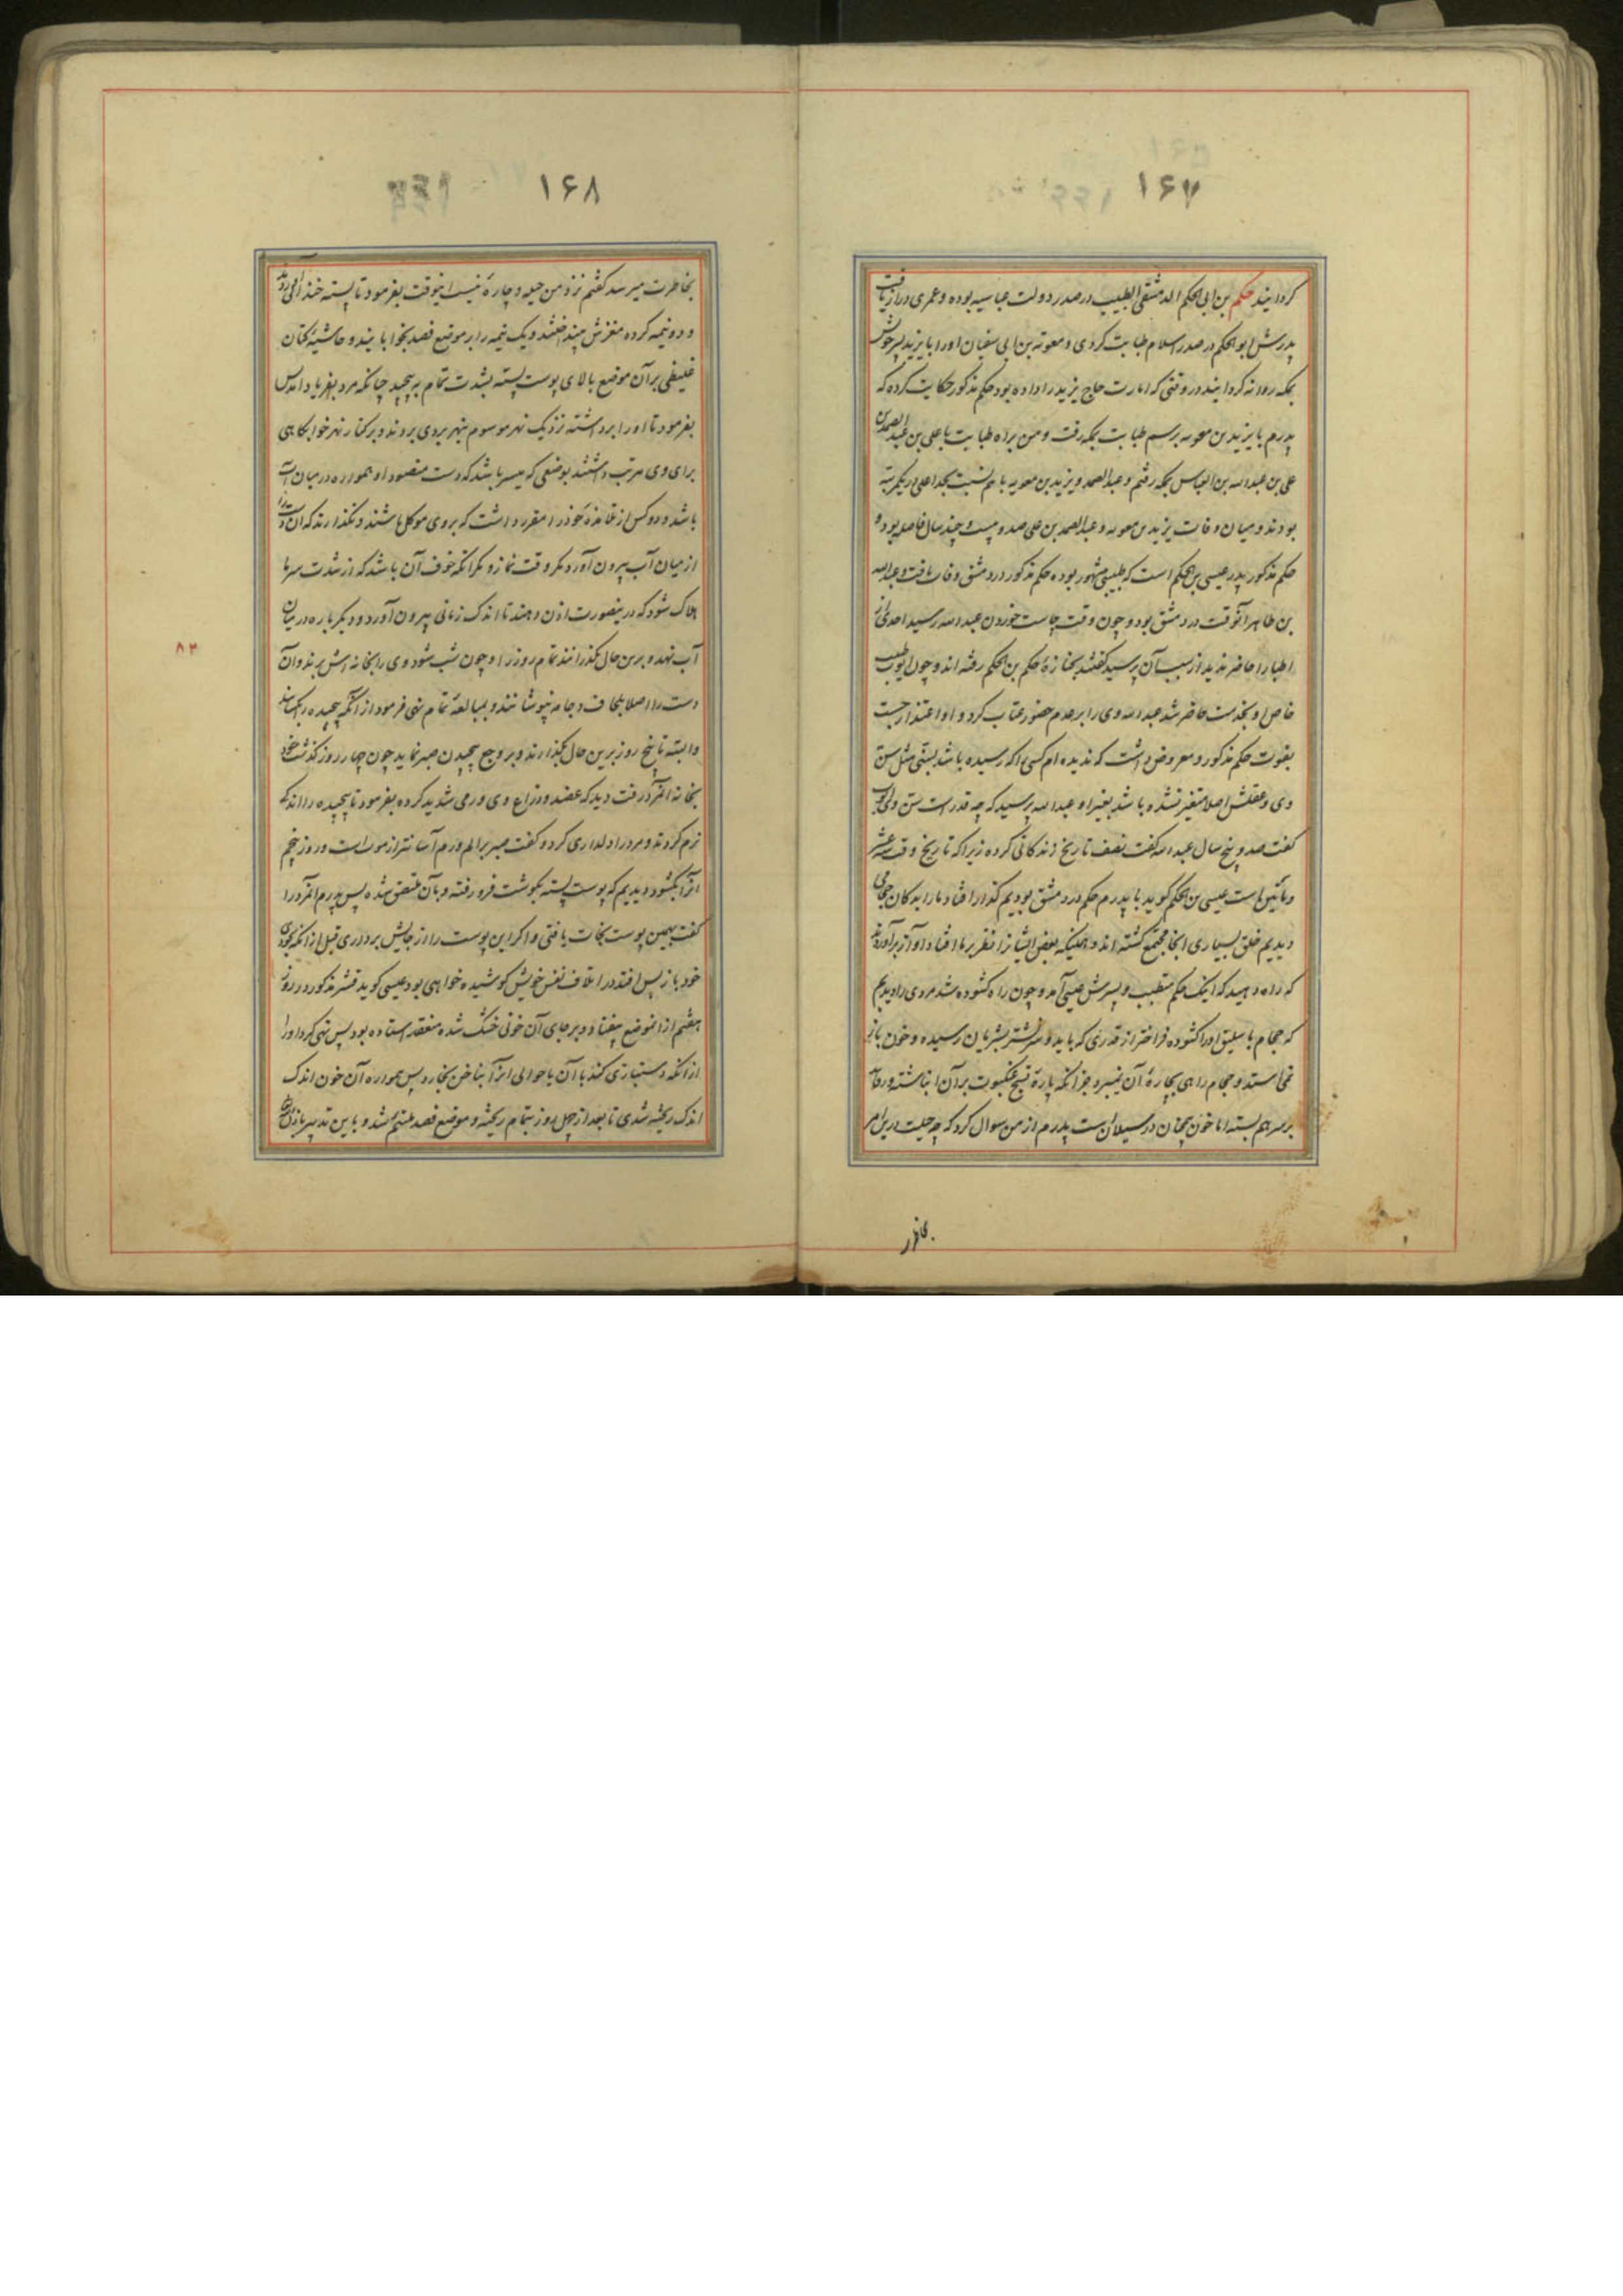 ۱۶۷
گردانید حکم بن ابی الحکم الدمشقی الطبیب در صدر دولت عباسیه بوده و عمری دراز یافت
پدرش ابو الحکم در صدر اسلام طبابت کردی و معویة بن ابی سفیان او را با یزید پسر خویش
بمکه روانه گردانید در وقتی که امارت حاج یزید را داده بود حکم مذکور حکایت کرده که
پدرم با یزید بن معویه برسم طبابت بمکه رفت و من براه طبابت با علی بن عبد الصمد بن
علی بن عبد الله بن العباس بمکه رفتم و عبد الصمد و یزید بن معویه با هم نسبت بجد اعلی در یکمرتبه
بودند و میان وفات یزید بن معویه و عبد الصمد بن علی صد و بیست و چند سال فاصله بود و
حکم مذکور پدر عیسی بن الحکم است که طبیبی مشهور بوده حکم مذکور در دمشق وفات یافت و عبد الله
بن طاهر آنوقت در دمشق بود و چون وقت چاست خوردن عبد الله رسید احدی از
اطبا را حاضر ندید از سبب آن پرسید گفتند بجنازهٔ حکم بن الحکم رفته اند و چون ایوب طبیب
خاص او بخدمت حاضر شد عبد الله وی را بر عدم حضور عتاب کرد و او اعتذار جست
بفوت حکم مذکور و معروض داشت که ندیده ام کسی را که رسیده باشد بسنی مثل سن
وی و عقلش اصلا متغیر نشده باشد بغیر او عبد الله پرسید که چه قدر است سن وی ایوب
گفت صد و پنج سال عبد الله گفت نصف تاریخ زندگانی کرده زیرا که تاریخ وقت عشر
و مأتین است عیسی بن الحکم گوید با پدرم حکم در دمشق بودیم گذار افتاد ما را بدکان حجامی
دیدیم خلق بسیاری آنجا مجتمع گشته اند و همینکه بعض ایشانرا نظر بر ما افتاد آواز برآوردند
که راه دهید که اینک حکم متطبب و پسرش عیسی آمد و چون راه گشوده شد مردی را دیدیم
که حجام باسلیق او را گشوده فراختر از قدری که باید و سر نشتر بشریان رسیده و خون باز
نمی ایستد و حجام راهی بچارهٔ آن نمیبرد جز آنکه پارهٔ نسج عنکبوت بر آن انباشته و رفاده
بر سر هم بسته اما خون همچنان در سیلان است پدرم از من سوال کرد که چه حیلت درین امر
بخاطر
۱۶۸
بخاطرت میرسد گفتم نزد من حیله و چارهٔ نیست اینوقت بفرمود تا پسته خندانی آوردند
و دو نیمه کرده مغزش بینداختند و یک نیمه را بر موضع فصد بخوابانیدند و حاشیهٔ کتان
غلیظی بر آن موضع بالای پوست پسته بشدت تمام به پیچید چنانکه مرد بفریاد آمد پس
بفرمود تا او را برداشته نزدیک نهر موسوم بنهر بردی بردند و بر کنار نهر خوابگاهی
برای وی مرتب داشتند بوضعی که میسر باشد که دست مفصود او همواره در میان آب
باشد و دو کس از تلامذهٔ خود را مقرر داشت که بر وی موکل باشند و نگذارند که آن دست را
از میان آب بیرون آورد مگر وقت نماز و مگر آنکه خوف آن باشد که از شدت سرما
هلاک شود که درینصورت اذن دهند تا اندک زمانی بیرون آورد و دیگر باره در میان
آب نهد و برین حال بگذرانند تمام روز را و چون شب شود وی را بخانه اش برند و آن
دست را اصلا بلحاف و جامه نپوشانند و بمبالغهٔ تمام نهی فرمود از آنکه پیچیده را بگشایند
و البته تا پنج روز برین حال بگذارند و بر وجع پیچیدن صبر نماید چون چهار روز گذشت خود
بخانه آنمرد رفت دید که عضد و ذراع وی ورمی شدید کرده بفرمود تا پیچیده را اندک
نرم کردند و مرد را دلداری کرد و گفت صبر بر الم ورم آسانتر از موت است و روز پنجم
آنرا بگشود دیدیم که پوست پسته بگوشت فرو رفته و بآن ملتصق شده پس پدرم آنمرد را
گفت بهمین پوست نجات یافتی و اگر این پوست را از جایش برداری قبل از آنکه بخودی
خود باز پس افتد در اتلاف نفس خویش کوشیده خواهی بود عیسی گوید قشر مذکور در روز
هفتم از انموضع بیفتاد و بر جای آن خونی خشک شده منعقد استاده بود پس نهی کرد او را
از آنکه دستبازی کند با آن یا حوالی آنرا بناخن بخارد پس همواره آن خون اندک
اندک ریخته شدی تا بعد از چهل روز بتمام ریخته و موضع فصد ملتئم شد و باین تدبیر
۸۳